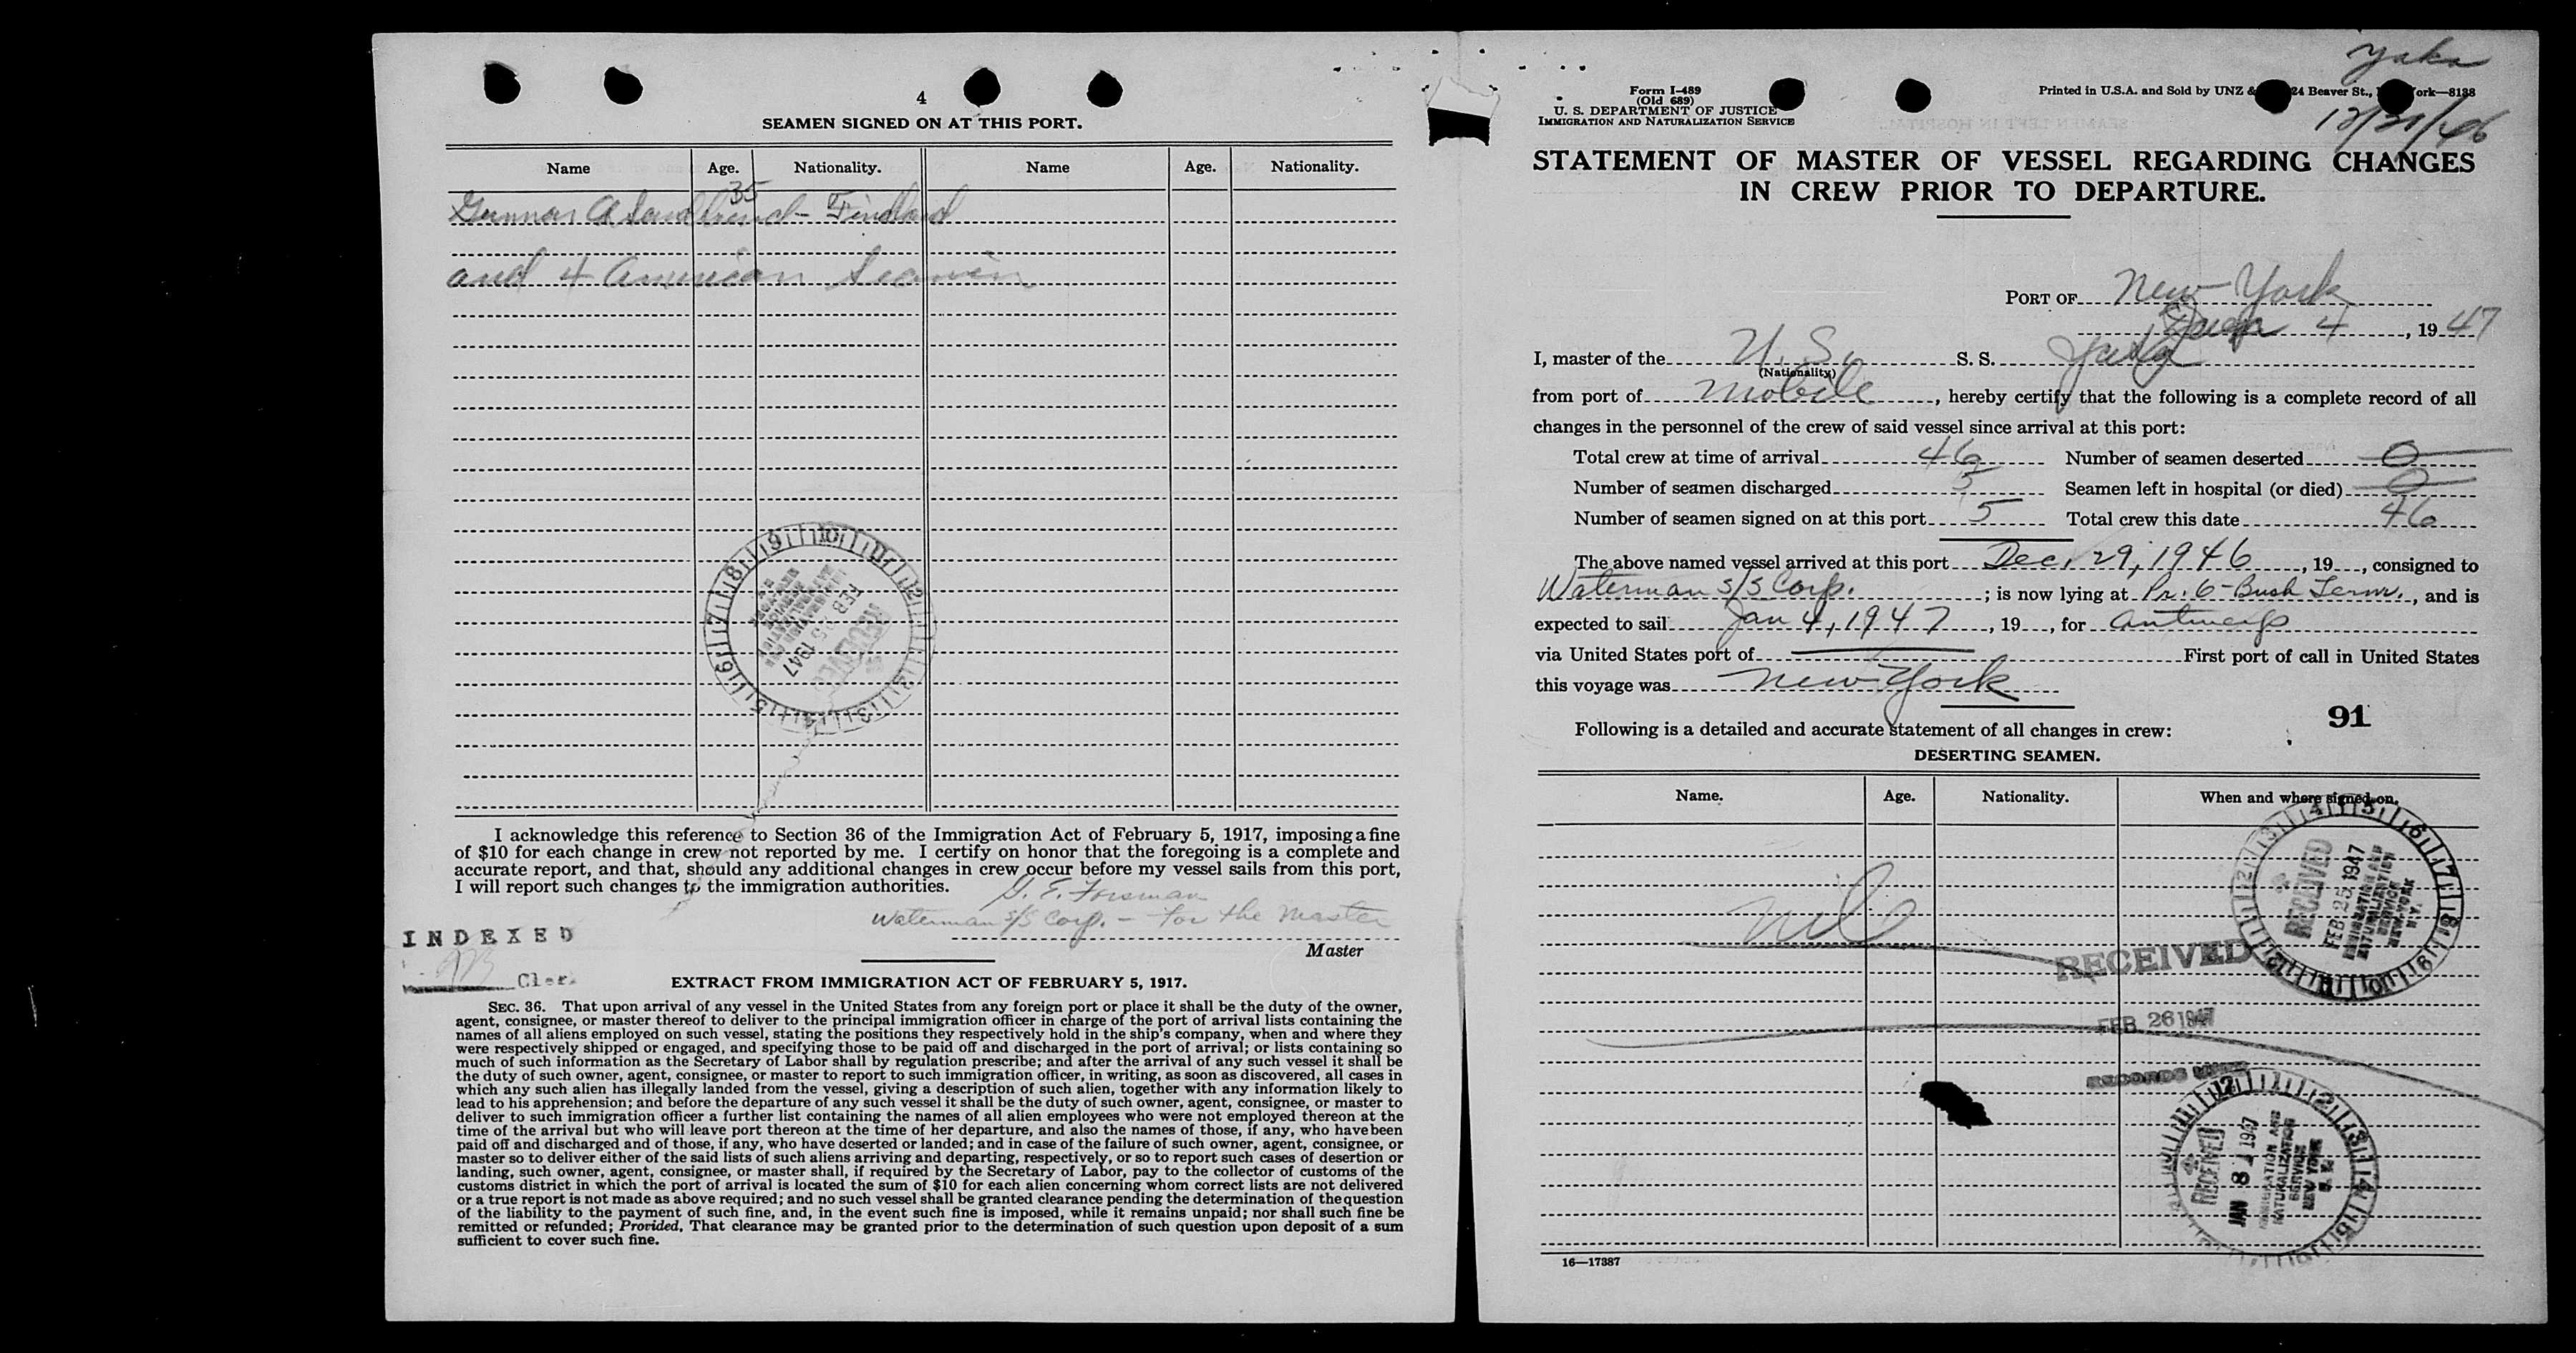 4
SEAMEN SIGNED ON AT THIS PORT.
Name Age. Nationality. Name Age. Nationality.
35
Gunnar A Finland
and 4 American Seamen
9 10 11 12 1 2 3 4 5 6 7 8
RECEIVED
FEB 25 1947
IMMIGRATION AND
NATURALIZATION
SERVICE
NEW YORK
N.Y.
I acknowledge this reference to Section 36 of the Immigration Act of February 5, 1917, imposing a fine
of $10 for each change in crew not reported by me. I certify on honor that the foregoing is a complete and
accurate report, and that, should any additional changes in crew occur before my vessel sails from this port,
I will report such changes to the immigration authorities.
G. E. Forsman
Waterman S/S Corp. - for the Master
Master
INDEXED
Clerk
EXTRACT FROM IMMIGRATION ACT OF FEBRUARY 5, 1917.
SEC. 36. That upon arrival of any vessel in the United States from any foreign port or place it shall be the duty of the owner,
agent, consignee, or master thereof to deliver to the principal immigration officer in charge of the port of arrival lists containing the
names of all aliens employed on such vessel, stating the positions they respectively hold in the ship's company, when and where they
were respectively shipped or engaged, and specifying those to be paid off and discharged in the port of arrival; or lists containing so
much of such information as the Secretary of Labor shall by regulation prescribe; and after the arrival of any such vessel it shall be
the duty of such owner, agent, consignee, or master to report to such immigration officer, in writing, as soon as discovered, all cases in
which any such alien has illegally landed from the vessel, giving a description of such alien, together with any information likely to
lead to his apprehension; and before the departure of any such vessel it shall be the duty of such owner, agent, consignee, or master to
deliver to such immigration officer a further list containing the names of all alien employees who were not employed thereon at the
time of the arrival but who will leave port thereon at the time of her departure, and also the names of those, if any, who have been
paid off and discharged and of those, if any, who have deserted or landed; and in case of the failure of such owner, agent, consignee, or
master so to deliver either of the said lists of such aliens arriving and departing, respectively, or so to report such cases of desertion or
landing, such owner, agent, consignee, or master shall, if required by the Secretary of Labor, pay to the collector of customs of the
customs district in which the port of arrival is located the sum of $10 for each alien concerning whom correct lists are not delivered
or a true report is not made as above required; and no such vessel shall be granted clearance pending the determination of the question
of the liability to the payment of such fine, and, in the event such fine is imposed, while it remains unpaid; nor shall such fine be
remitted or refunded; Provided, That clearance may be granted prior to the determination of such question upon deposit of a sum
sufficient to cover such fine.
Yaka
Form I-489
(Old 689)
U. S. DEPARTMENT OF JUSTICE
IMMIGRATION AND NATURALIZATION SERVICE
Printed in U.S.A. and Sold by UNZ & 24 Beaver St., ork—8138
STATEMENT OF MASTER OF VESSEL REGARDING CHANGES
IN CREW PRIOR TO DEPARTURE.
PORT OF New York
4, 19 47
I, master of the U.S. S. S. Yaka
(Nationality)
from port of Mobile, hereby certify that the following is a complete record of all
changes in the personnel of the crew of said vessel since arrival at this port:
Total crew at time of arrival 46 Number of seamen deserted 0
Number of seamen discharged 5 Seamen left in hospital (or died) 0
Number of seamen signed on at this port 5 Total crew this date 46
The above named vessel arrived at this port Dec. 29, 1946, 19 , consigned to
Waterman S/S Corp. ; is now lying at Pr. 6 - Bush Term., and is
expected to sail Jan 4, 1947, 19 , for Antwerp
via United States port of First port of call in United States
this voyage was New York
91
Following is a detailed and accurate statement of all changes in crew:
DESERTING SEAMEN.
Name. Age. Nationality. When and where signed on.
nil
RECEIVED
FEB 25 1947
IMMIGRATION AND
NATURALIZATION
SERVICE
NEW YORK
N.Y.
RECEIVED
FEB 26 1947
RECORDS UNIT
RECEIVED
JAN 8 1947
IMMIGRATION AND
NATURALIZATION
SERVICE
NEW YORK
N.Y.
16—17387